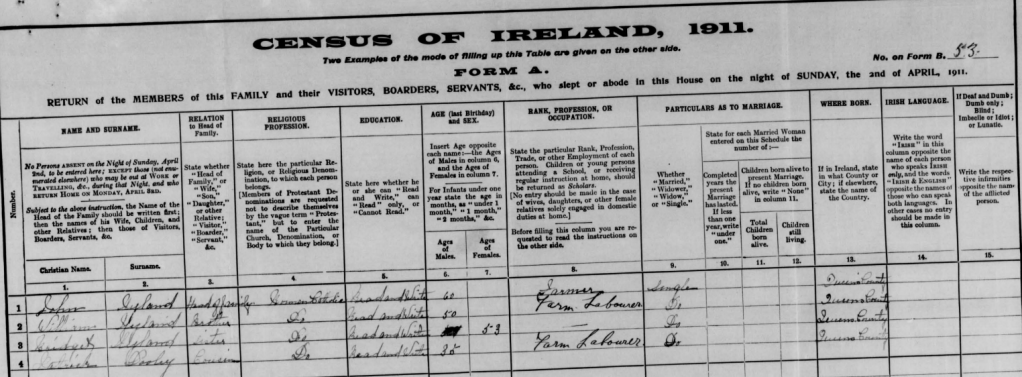 CENSUS OF IRELAND, 1911.
Two Examples of the mode of filling up this Table are given on the other side.
FORM A.
No. on Form B. 53.
RETURN of the MEMBERS of this FAMILY and their VISITORS, BOARDERS, SERVANTS, &c., who slept or abode in this House on the night of SUNDAY, the 2nd of APRIL, 1911.
Number.
NAME AND SURNAME.
No Persons ABSENT on the Night of Sunday, April 2nd, to be entered here; EXCEPT those (not enumerated elsewhere) who may be out at WORK or TRAVELLING, &c., during that Night, and who RETURN HOME ON MONDAY, APRIL 3RD.
Subject to the above instruction, the Name of the Head of the Family should be written first; then the names of his Wife, Children, and other Relatives; then those of Visitors, Boarders, Servants, &c.
Christian Name.
Surname.
RELATION to Head of Family.
State whether "Head of Family," or "Wife," "Son," "Daughter," or other Relative; "Visitor," "Boarder," "Servant," &c.
RELIGIOUS PROFESSION.
State here the particular Religion, or Religious Denomination, to which each person belongs.
[Members of Protestant Denominations are requested not to describe themselves by the vague term "Protestant," but to enter the name of the Particular Church, Denomination, or Body to which they belong.]
EDUCATION.
State here whether he or she can "Read and Write," can "Read" only, or "Cannot Read."
AGE (last Birthday) and SEX.
Insert Age opposite each name:—the Ages of Males in column 6, and the Ages of Females in column 7.
For Infants under one year state the age in months, as "under 1 month," "1 month," "2 months," &c.
Ages of Males.
Ages of Females.
RANK, PROFESSION, OR OCCUPATION.
State the particular Rank, Profession, Trade, or other Employment of each person. Children or young persons attending a School, or receiving regular instruction at home, should be returned as Scholars.
[No entry should be made in the case of wives, daughters, or other female relatives solely engaged in domestic duties at home.]
Before filling this column you are requested to read the instructions on the other side.
PARTICULARS AS TO MARRIAGE.
Whether "Married," "Widower," "Widow," or "Single."
State for each Married Woman entered on this Schedule the number of :—
Completed years the present Marriage has lasted. If less than one year, write "under one."
Children born alive to present Marriage. If no children born alive, write "None" in column 11.
Total Children born alive.
Children still living.
WHERE BORN.
If in Ireland, state in what County or City; if elsewhere, state the name of the Country.
IRISH LANGUAGE.
Write the word "IRISH" in this column opposite the name of each person who speaks IRISH only, and the words "IRISH & ENGLISH" opposite the names of those who can speak both languages. In other cases no entry should be made in this column.
If Deaf and Dumb; Dumb only; Blind; Imbecile or Idiot; or Lunatic.
Write the respective infirmities opposite the name of the afflicted person.
1. 2. 3. 4. 5. 6. 7. 8. 9. 10. 11. 12. 13. 14. 15.
1 John Hyland Head of Family Roman Catholic Read and Write 60 Farmer Single Queens County
2 William Hyland Brother Do Read and Write 50 Farm Labourer Do Queens County
3 Bridget Hyland Sister Do Read and Write 53 — Do Queens County
4 Patrick Cousin Do Read and Write 35 Farm Labourer Do Queens County